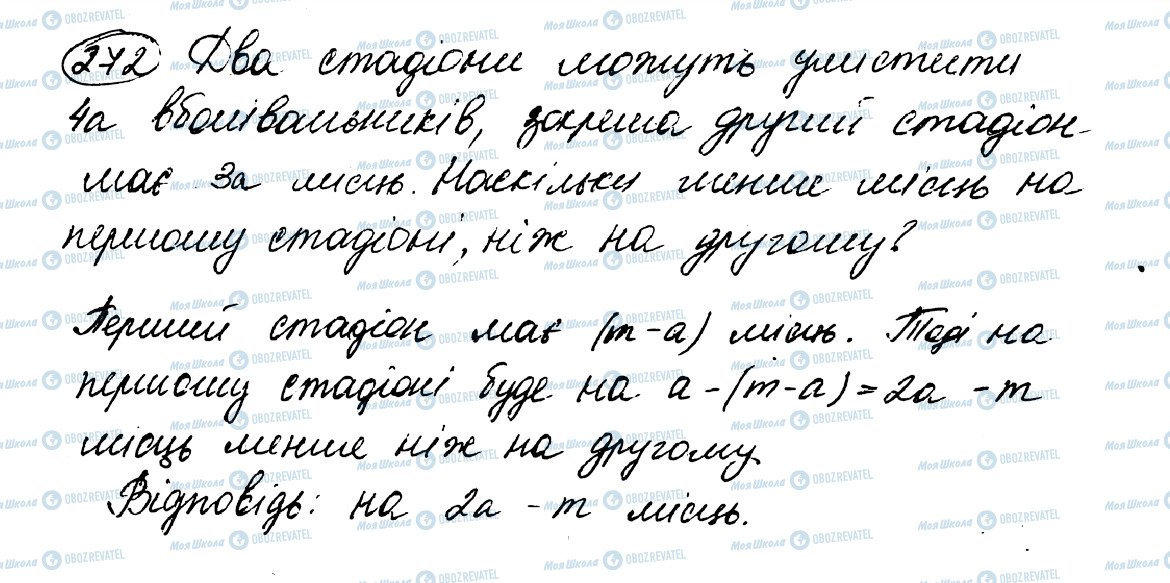 272 Два стадіони можуть умістити
4а вболівальників, зокрема другий стадіон
має 3а місць. Наскільки менше місць на
першому стадіоні, ніж на другому?
Перший стадіон має (m-a) місць. Тоді на
першому стадіоні буде на a-(m-a)=2a-m
місць менше ніж на другому
Відповідь: на 2a-m місць.